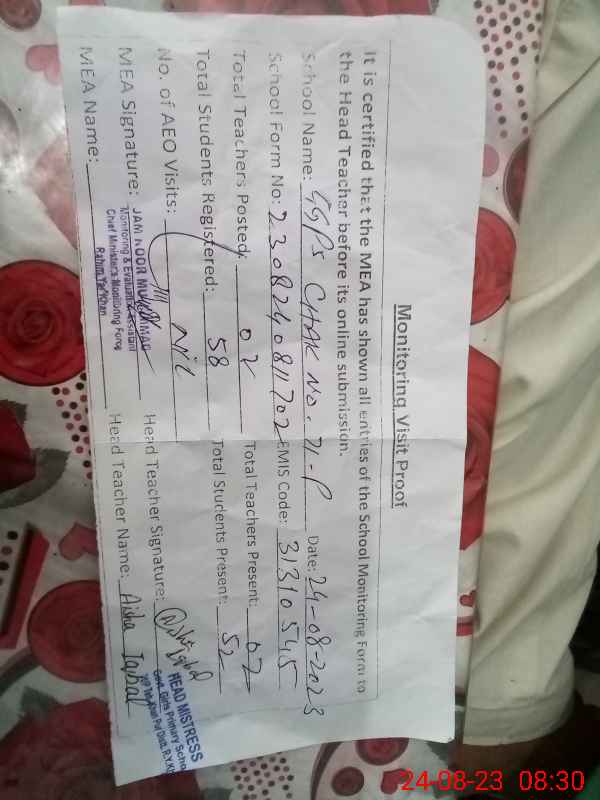 Monitoring Visit Proof
It is certified that the MEA has shown all entries of the School Monitoring Form to
the Head Teacher before its online submission.
School Name: GGPS CHAK No. 71-P Date: 24-08-2023
School Form No: 230824081702 EMIS Code: 31310545
Total Teachers Posted: 02 Total Teachers Present: 02
Total Students Registered: 58 Total Students Present: 52
No. of AEO Visits: Nil
MEA Signature: Head Teacher Signature: Aisha Iqbal
MEA Name: Head Teacher Name: Aisha Iqbal
JAM NOOR MUHAMMAD
Monitoring & Evaluation Assistant
Chief Minister's Monitoring Force
Rahim Yar Khan
HEAD MISTRESS
Govt. Girls Primary School
Khan Pur Distt. R.Y.K
24-08-23 08:30